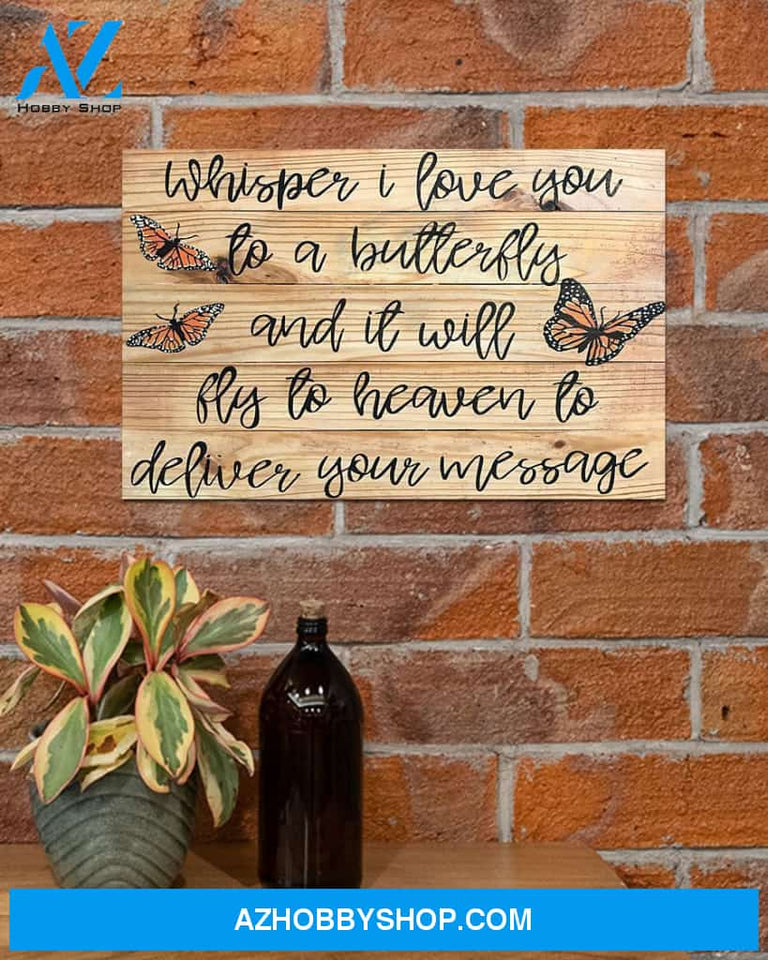 AZ
HOBBY SHOP
Whisper i love you
to a butterfly
and it will
fly to heaven to
deliver your message
AZHOBBYSHOP.COM